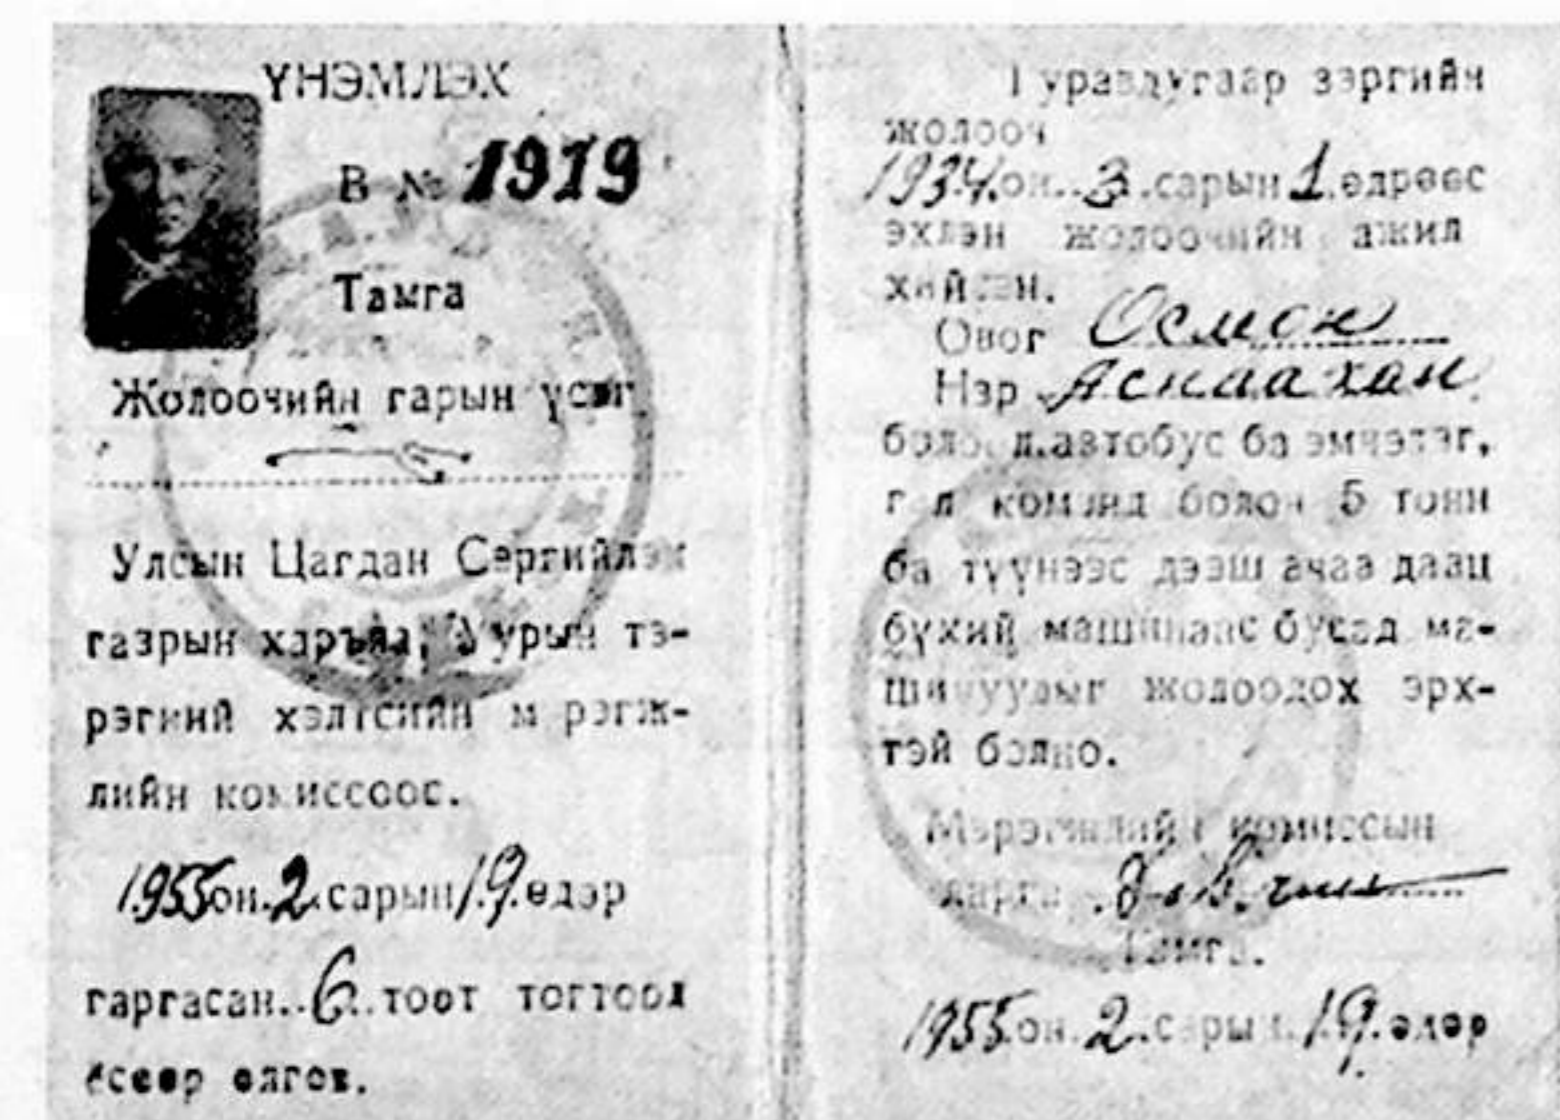 ҮНЭМЛЭХ
В № 1919
Тамга
Жолоочийн гарын үсэг
Улсын Цагдан Сэргийлэх
газрын харъяа, Уурын тэ-
рэгний хэлтсийн мэрэгж-
лийн комиссоос.
1955 он. 2. сарын 19. өдөр
гаргасан.. 6.. тоот тогтоол
ёсоор олгов.
Гуравдугаар зэргийн
жолооч
1934. он.. 3. .сарын 1. өдрөөс
эхлэн жолоочийн ажил
хийсэн.
Овог Осмон
Нэр Аснаахан
автобус ба
команд болон 5 тонн
ба түүнээс дээш ачаа даац
бүхий машинаас бусад ма-
шинуудыг жолоодох эрх-
тэй болно.
Мэрэгжлийн комиссын
дарга
Тамга.
1955. он. 2. .сарын. 19. өдөр